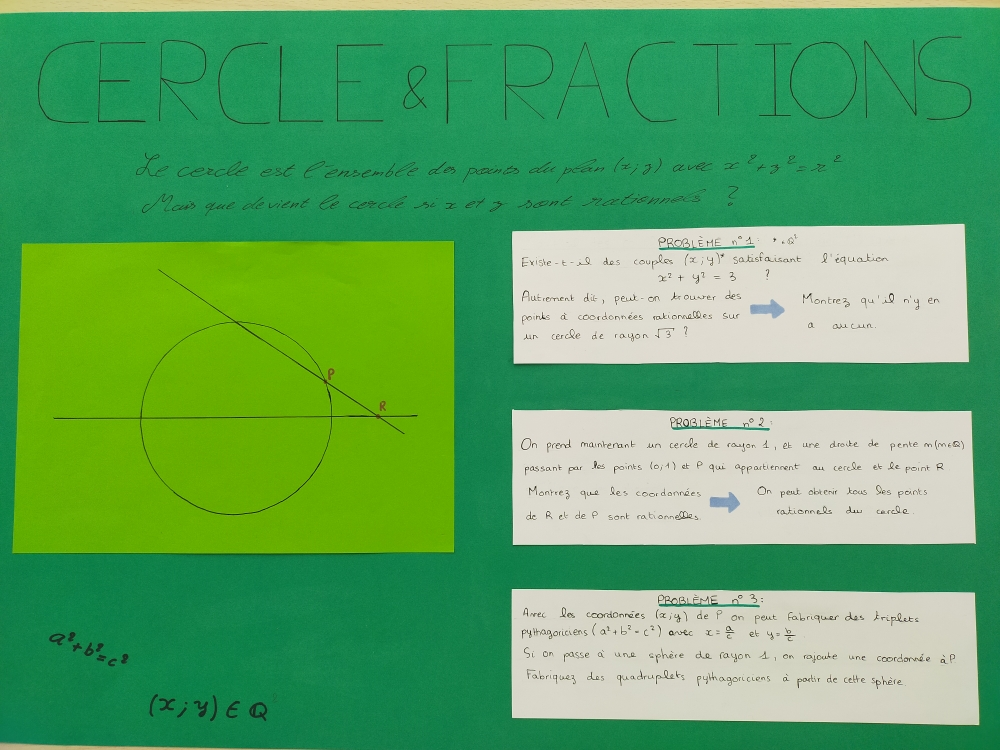 CERCLE & FRACTIONS
Le cercle est l'ensemble des points du plan (x;y) avec x²+y²=r²
Mais que devient le cercle si x et y sont rationnels ?
P
R
a²+b²=c²
(x;y) ∈ Q
PROBLÈME n°1: * ∈ Q²
Existe-t-il des couples (x;y)* satisfaisant l'équation
x² + y² = 3 ?
Autrement dit, peut-on trouver des
points à coordonnées rationnelles sur
un cercle de rayon √3 ?
Montrez qu'il n'y en
a aucun.
PROBLÈME n°2:
On prend maintenant un cercle de rayon 1, et une droite de pente m(m∈Q)
passant par les points (0;1) et P qui appartiennent au cercle et le point R
Montrez que les coordonnées
de R et de P sont rationnelles.
On peut obtenir tous les points
rationnels du cercle.
PROBLÈME n°3:
Avec les coordonnées (x;y) de P on peut fabriquer des triplets
pythagoriciens (a²+b²=c²) avec x=a/c et y=b/c.
Si on passe à une sphère de rayon 1, on rajoute une coordonnée à P
Fabriquez des quadruplets pythagoriciens à partir de cette sphère